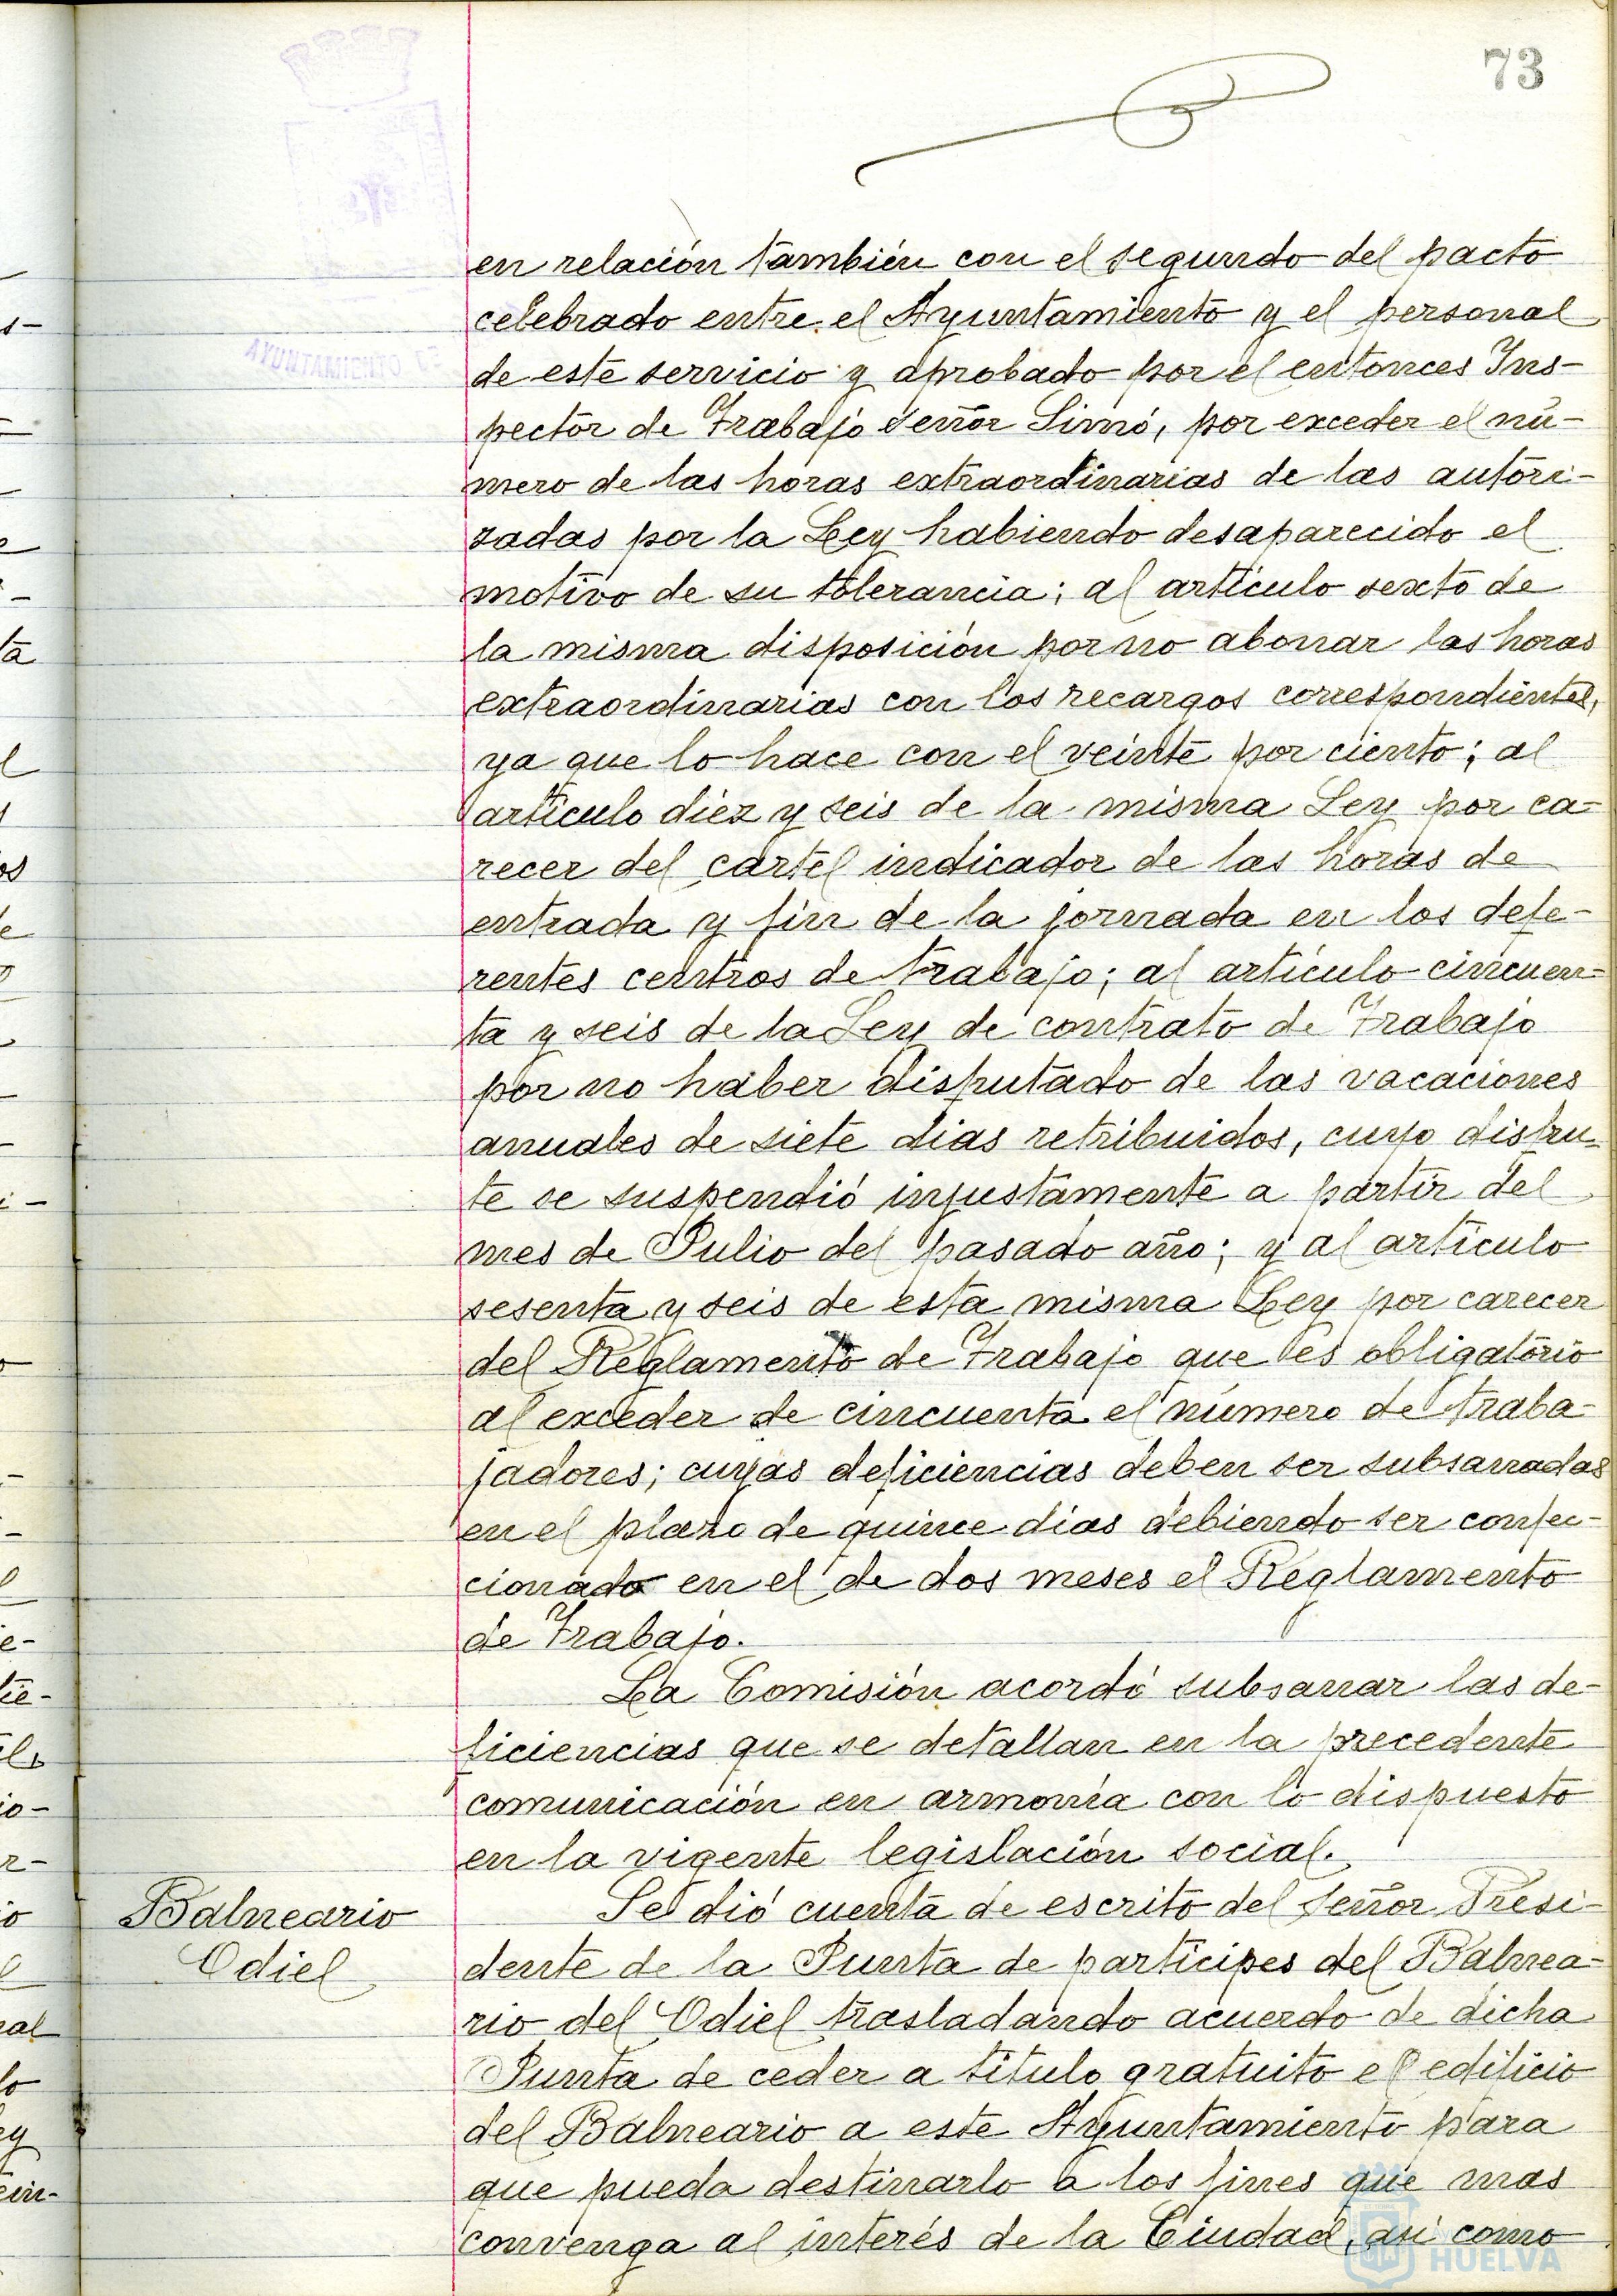 73
en relación también con el segundo del pacto
celebrado entre el Ayuntamiento y el personal
de este servicio y aprobado por el entonces Ins-
pector de Trabajo señor Simó, por exceder el nú-
mero de las horas extraordinarias de las autori-
zadas por la Ley habiendo desaparecido el
motivo de su tolerancia; al artículo sexto de
la misma disposición por no abonar las horas
extraordinarias con los recargos correspondientes,
ya que lo hace con el veinte por ciento; al
artículo diez y seis de la misma Ley por ca-
recer del cartel indicador de las horas de
entrada y fin de la jornada en los defe-
rentes centros de trabajo; al artículo cincuen-
ta y seis de la Ley de contrato de Trabajo
por no haber disfrutado de las vacaciones
anuales de siete dias retribuidos, cuyo disfru-
te se suspendió injustamente a partir del
mes de Julio del pasado año; y al artículo
sesenta y seis de esta misma Ley por carecer
del Reglamento de Trabajo que es obligatorio
al exceder de cincuenta el número de traba-
jadores; cuyas deficiencias deben ser subsanadas
en el plazo de quince dias debiendo ser confec-
cionado en el de dos meses el Reglamento
de Trabajo.
La Comisión acordó subsanar las de-
ficiencias que se detallan en la precedente
comunicación en armonía con lo dispuesto
en la vigente legislación social.
Balneario
Odiel
Se dió cuenta de escrito del señor Presi-
dente de la Junta de partícipes del Balnea-
rio del Odiel trasladando acuerdo de dicha
Junta de ceder a título gratuito el edificio
del Balneario a este Ayuntamiento para
que pueda destinarlo a los fines que mas
convenga al interés de la Ciudad, así como
AYUNTAMIENTO DE
HUELVA